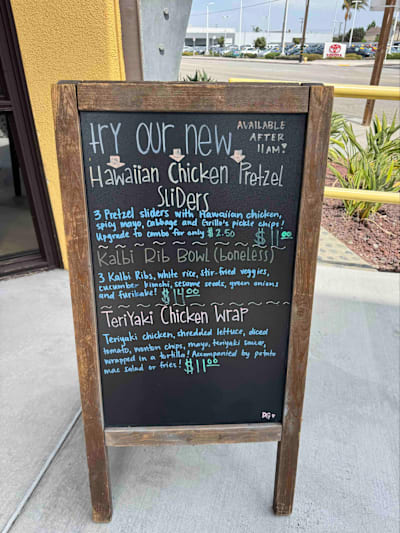 TOYOTA
try our new
AVAILABLE
AFTER
11AM!
Hawaiian Chicken Pretzel
SLiDers
3 Pretzel sliders with Hawaiian chicken,
spicy mayo, cabbage and Grillo's pickle chips!
Upgrade to combo for only $2.50 $11.00
Kalbi Rib Bowl (boneless)
3 Kalbi Ribs, white rice, stir-fried veggies,
cucumber kimchi, sesame seeds, green onions
and furikake! $11.00
TeriYaki Chicken Wrap
Teriyaki chicken, shredded lettuce, diced
tomato, wonton chips, mayo, teriyaki sauce,
wrapped in a tortilla! Accompanied by potato
mac salad or fries! $11.00
DG